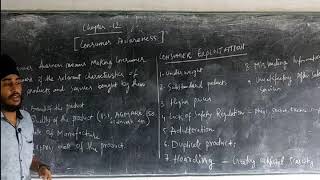 Chapter - 12
[Consumer Awareness]
Consumer Awareness means Making Consumer
of the relevant characteristics of
products and services bought by them
of the product
Quality of the product (ISI, AGMARK, ISO
of Manufacture
date of the product.
CONSUMER EXPLOITATION
1. Underweight
2. Substandard products
3. Higher prices
4. Lack of Safety Regulation
5. Adulteration
6. Duplicate product,
7. Hoarding - Creating artificial Scarcity
8. Misleading Information
9. Unsatisfactory after sale
Service